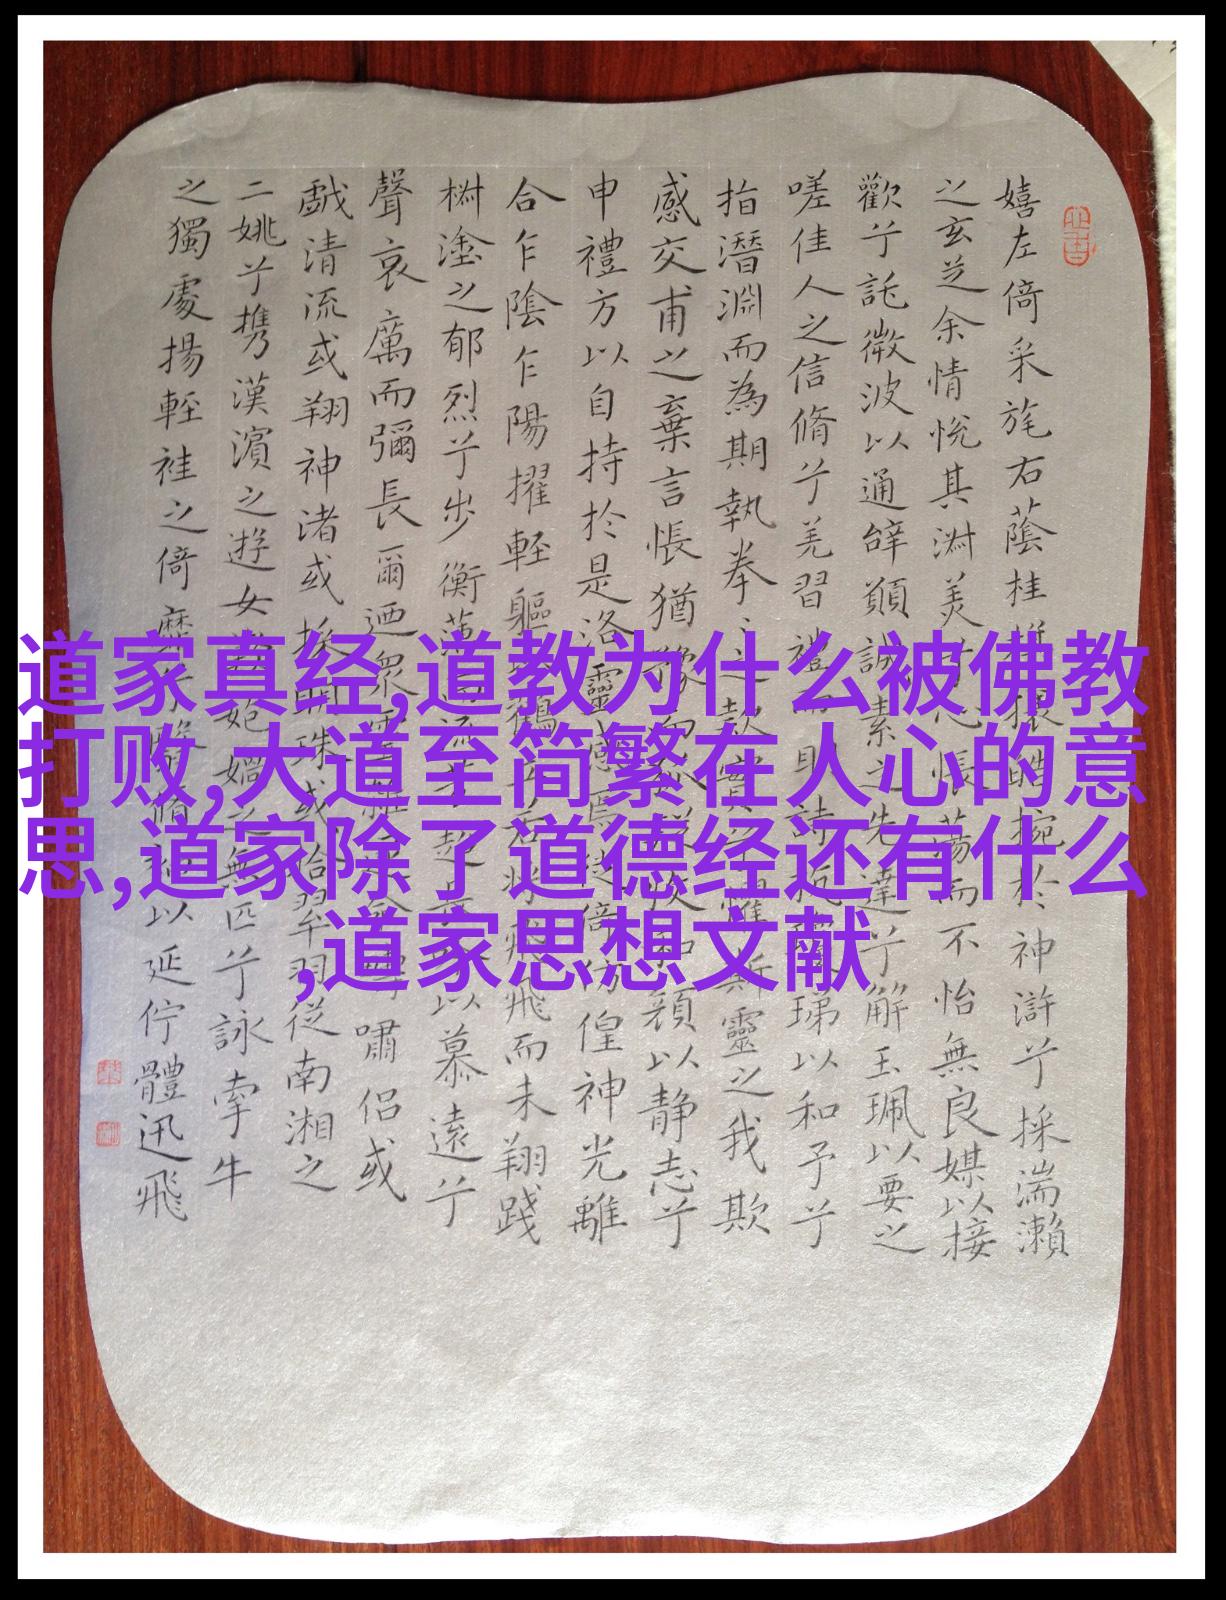 道家真经,道教为什么被佛教
打败,大道至简繁在人心的意
思,道家除了道德经还有什么
,道家思想文献
嬉左倚采旄右蔭桂於神滸兮採湍瀨
之玄芝余情悅其淑美悵蕩而不怡無良媒以接
歡兮託微波以通辭願誠素之先達兮解玉珮以要之
嗟佳人之信脩兮羌習禮詩以和予兮
指潛淵而為期執拳實斯靈之我欺
感交甫之棄言悵猶顏以静志兮
申禮方以自持於是洛靈倚仿偟神光離
合乍陰乍陽擢輕軀鶴飛而未翔踐
椒塗之郁烈兮步衡超以慕遠兮
聲哀厲而彌長爾迺衆嘯侶或
戲清流或翔神渚或採珠或拾羽從南湘之
二姚兮攜漢濱之遊女媧之無匹兮詠牽牛
之獨處揚輕袿之倚靡脩以延佇體迅飛